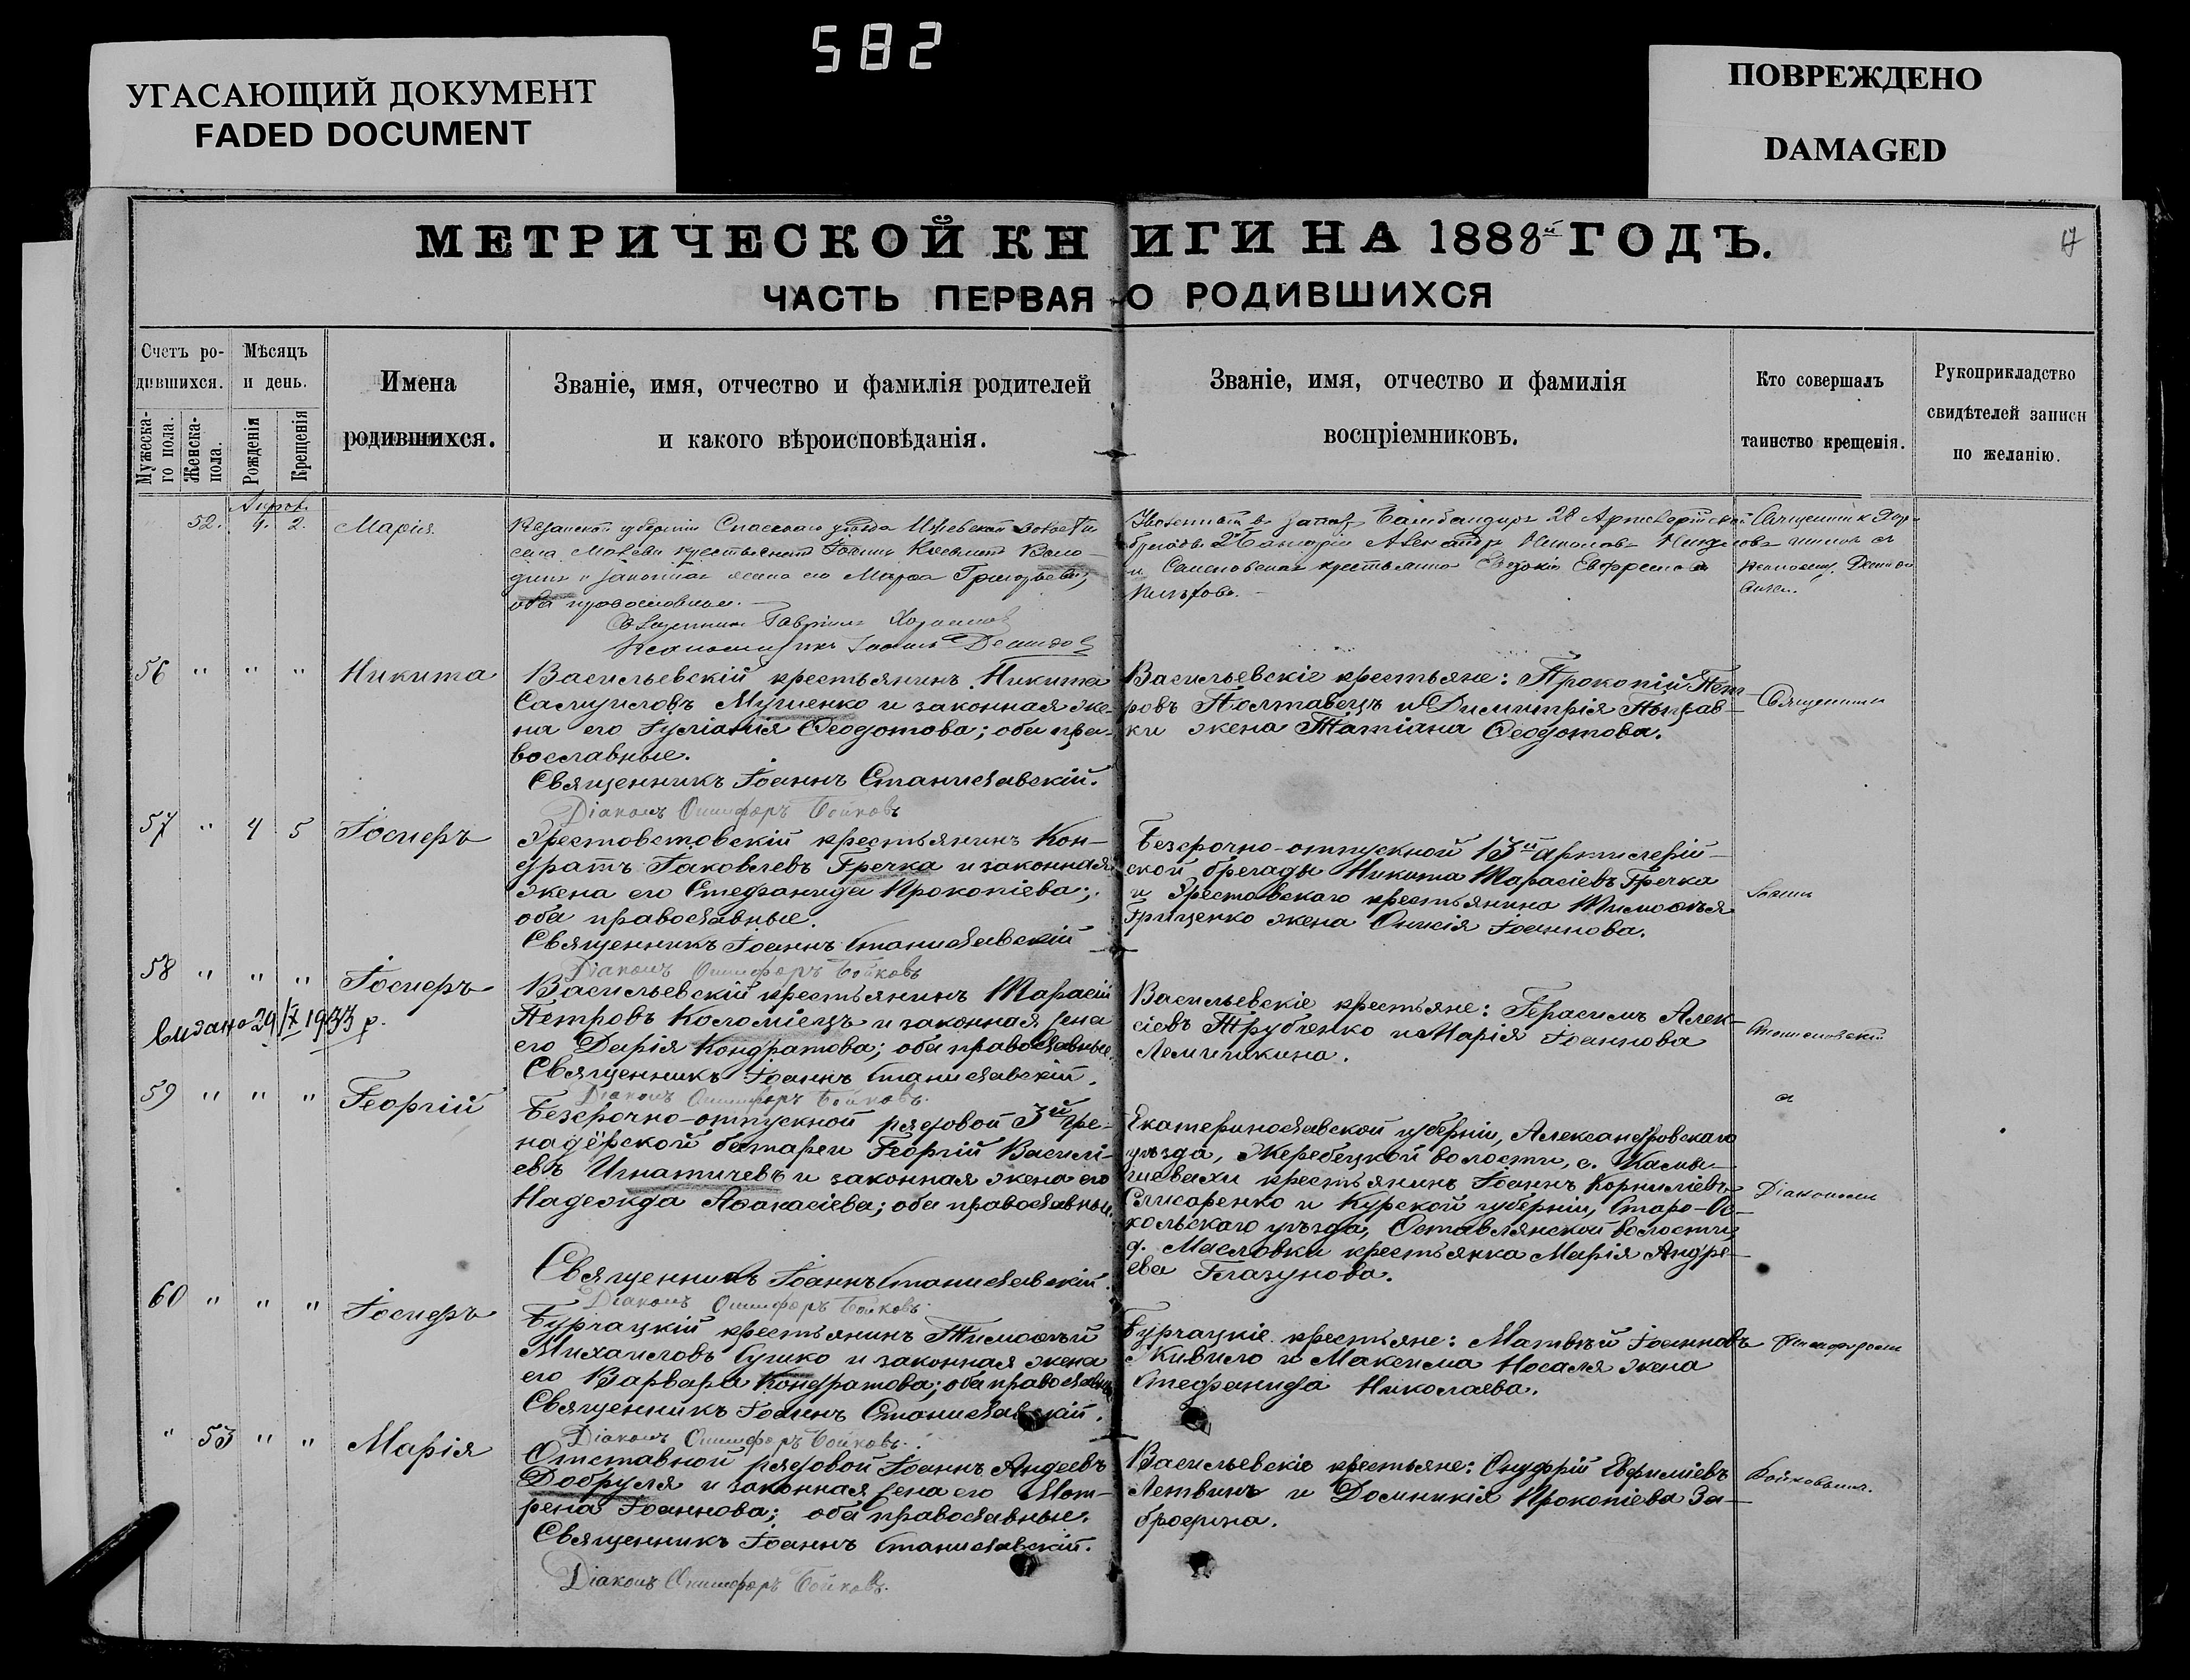 582
УГАСАЮЩИЙ ДОКУМЕНТ
FADED DOCUMENT
ПОВРЕЖДЕНО
DAMAGED
МЕТРИЧЕСКОЙ КНИГИ НА 1888й ГОДЪ.
17
ЧАСТЬ ПЕРВАЯ О РОДИВШИХСЯ
Счетъ ро-
дившихся.
Мужеска-
го пола.
Женска-
пола.
Мѣсяцъ
и день.
Рожденія
Крещенія
Имена
родившихся.
Званіе, имя, отчество и фамилія родителей
и какого вѣроисповѣданія.
Званіе, имя, отчество и фамилія
воспріемниковъ.
Кто совершалъ
таинство крещенія.
Рукоприкладство
свидѣтелей записи
по желанію.
52. 2. Марія
губерніи Спасскаго уѣзда
села крестьянинъ
и законная жена его Григорьева,
оба православные.
Священникъ Гавріилъ
56 " " " Никита
Васильевскій крестьянинъ Никита
Самуиловъ и законная же-
на его Іуліанія Ѳеодотова; оба пра-
вославные.
Священникъ Іоаннъ Станиславскій.
Діаконъ Онисифоръ Бойковъ
Васильевскіе крестьяне: Прокопій Пет-
ровъ Полтавецъ и Димитрія
жена Татіана Ѳеодотова.
Священникъ
57 " 4 5 Іосифъ
крестьянинъ Кон-
дратъ Іаковлевъ Гречка и законная
жена его Стефанида Прокопіева;
оба православные.
Священникъ Іоаннъ Станиславскій
Діаконъ Онисифоръ Бойковъ
Безсрочно-отпускной 13й артилерій-
ской бригады Никита Тарасіевъ Гречка
и крестьянина Тимоѳея
Грищенко жена Онисія Іоаннова.
Іоаннъ
58 " " " Іосифъ
Видано 29/X 1933 р.
Васильевскій крестьянинъ Тарасій
Петровъ Коломіецъ и законная жена
его Дарія Кондратова; оба православные.
Священникъ Іоаннъ Станиславскій.
Діаконъ Онисифоръ Бойковъ.
Васильевскіе крестьяне: Герасимъ Алек-
сіевъ Трубченко и Марія Іоаннова
Станиславскій
59 " " " Георгій
Безсрочно-отпускной рядовой 3й гре-
надёрской батареи Георгій Василі-
евъ Игнатичевъ и законная жена его
Надежда Аѳанасіева; оба православные.
Священникъ Іоаннъ Станиславскій.
Діаконъ Онисифоръ Бойковъ.
Екатеринославской губерніи, Александровскаго
уѣзда, Жеребецкой волости, с. Камы-
шевахи крестьянинъ Іоаннъ Корниліевъ
Слисаренко и Курской губерніи, Старо-Ос-
кольскаго уѣзда, волости,
д. Масловки крестьянка Марія Андре-
ева Глазунова.
съ
Діакономъ
60 " " " Іосифъ
Бурчацкій крестьянинъ Тимоѳѣй
Михаиловъ Сушко и законная жена
его Варвара Кондратова; оба православные
Священникъ Іоаннъ Станиславскій.
Діаконъ Онисифоръ Бойковъ.
Бурчацкіе крестьяне: Матвѣй Іоанновъ
Живило и Максима Носаля жена
Стефанида Николаева.
Онисифоромъ
" 53 " " Марія
Отставной рядовой Іоаннъ Андеевъ
Добруля и законная жена его Мат-
рена Іоаннова; оба православные.
Священникъ Іоаннъ Станиславскій.
Діаконъ Онисифоръ Бойковъ.
Васильевскіе крестьяне: Онуфрій Евфиміевъ
Летвинъ и Домникія Прокопіева За-
бродина.
Бойковымъ.